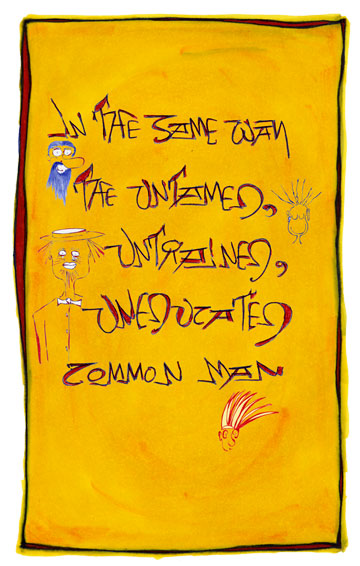 IN THE SAME WAY
THE UNTAMED,
UNTRAINED,
UNEDUCATED
COMMON MAN